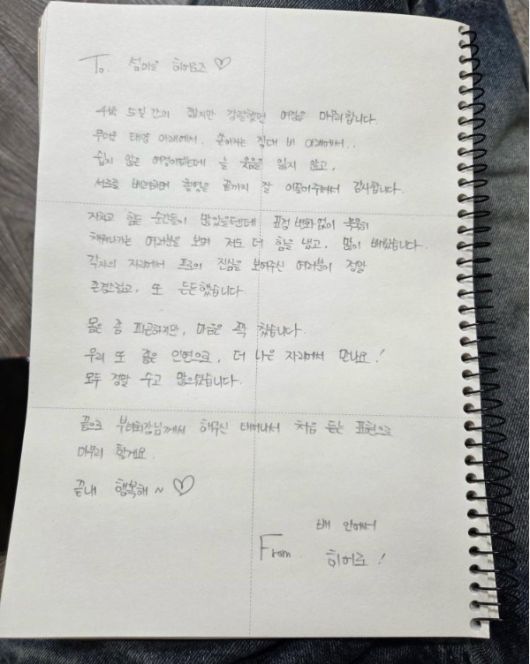 To. 섬마을 히어로즈 ♡
4박 5일 간의 짧지만 강렬했던 여정을 마무리합니다.
무더운 태양 아래에서, 쏟아지는 장대 비 아래에서..
쉽지 않은 여정이었는데 늘 웃음을 잃지 않고,
서로를 배려하며 촬영을 끝까지 잘 이끌어주셔서 감사합니다.
지치고 힘든 순간들이 많았을텐데 표정 변화 없이 묵묵히
해나가는 여러분을 보며 저도 더 힘을 냈고, 많이 배웠습니다.
각자의 자리에서 프로의 진심을 보여주신 여러분이 정말
존경스럽고, 또 든든했습니다.
몸은 좀 피곤하지만, 마음은 꽉 찼습니다.
우리 또 좋은 인연으로, 더 나은 자리에서 만나요!
모두 정말 수고 많으셨습니다.
끝으로 부녀회장님께서 해주신 태어나서 처음 듣는 표현으로
마무리 할게요.
끝내 행복해 ~ ♡
배 안에서
From. 히어로!